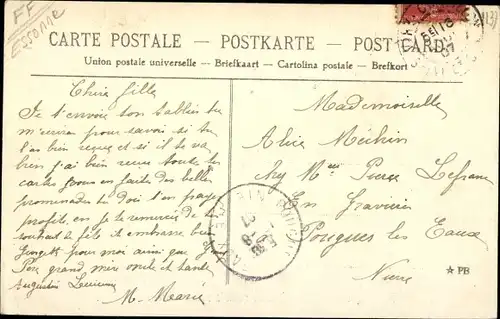 FF
Essonne
CARTE POSTALE — POSTKARTE — POST CARD
Union postale universelle — Briefkaart — Cartolina postale — Brefkort
Chère fille
Je t'envoie ton tablier tu
m'écriras pour savoir si tu
l'as bien reçue et si il te va
bien j'ai bien reçue toute tes
cartes vous en faites des belles
promenades
profite, en je te remercie de
souhait de fête et embrasse bien
pour moi ainsi que
Père grand mère oncle et tante
Augustin
M. Marie
Mademoiselle
Alice Méchin
chez Mme Pierre Lefranc
En Gravière
Pougues les Eaux
Nièvre
★ PB